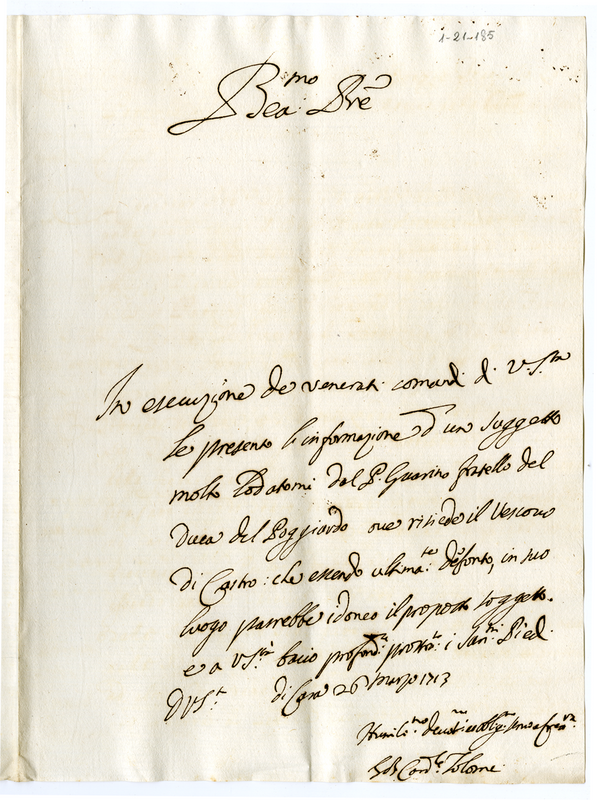 1-21-185
Bea:mo Pre
In esecuzione de venerati comandi di V. S.tà
le presento le informazione d'un suggetto
molto lodatomi dal P. Guarino fratello del
Duca del Poggiardo ove risiede il Vescovo
di Castro: che essendo ultima:te defonto, in suo
luogo parrebbe idoneo il proposto soggetto.
e a V. S.tà bacio profond: prostr: i San:mi Piedi.
D V S.tà di Casa 26 Marzo 1713
Humil:mo devot:mo
Card:le Tolomei